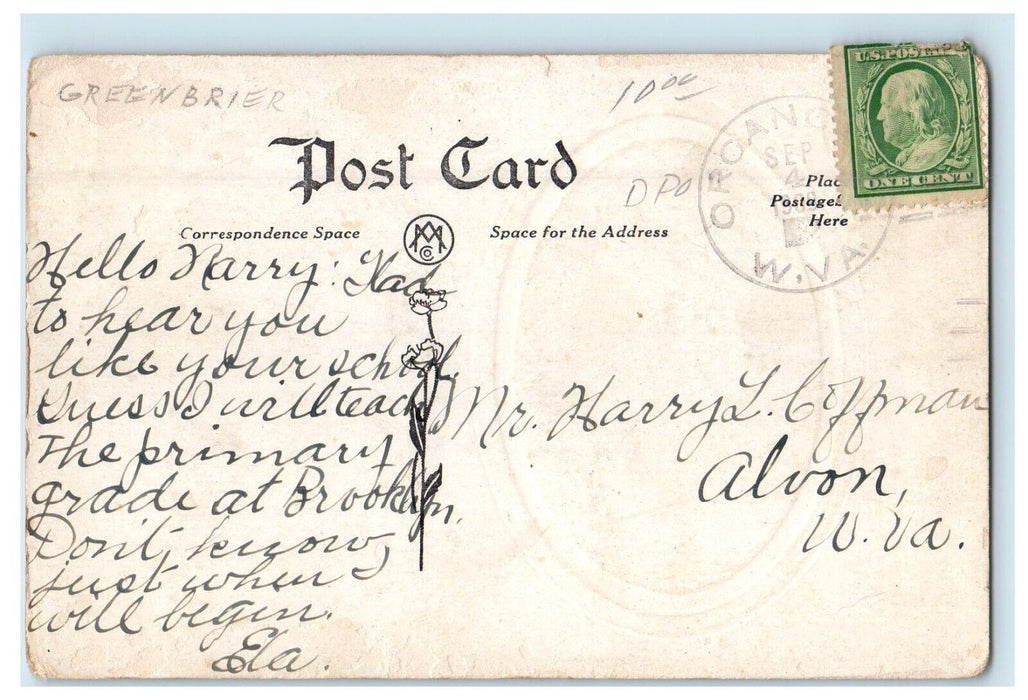 GREENBRIER
10 00
Post Card
DPO
ORGANC
SEP
4
W. VA.
U.S. POSTAGE
ONE CENT
Place
Postage
Here
Correspondence Space
AMCo
Space for the Address
Hello Harry: Glad
to hear you
like your school.
Guess I will teach
the primary
grade at Brooklyn.
Don't know
just when
will begin.
Ela.
Mr. Harry L. Coffman
Alvon,
W. Va.